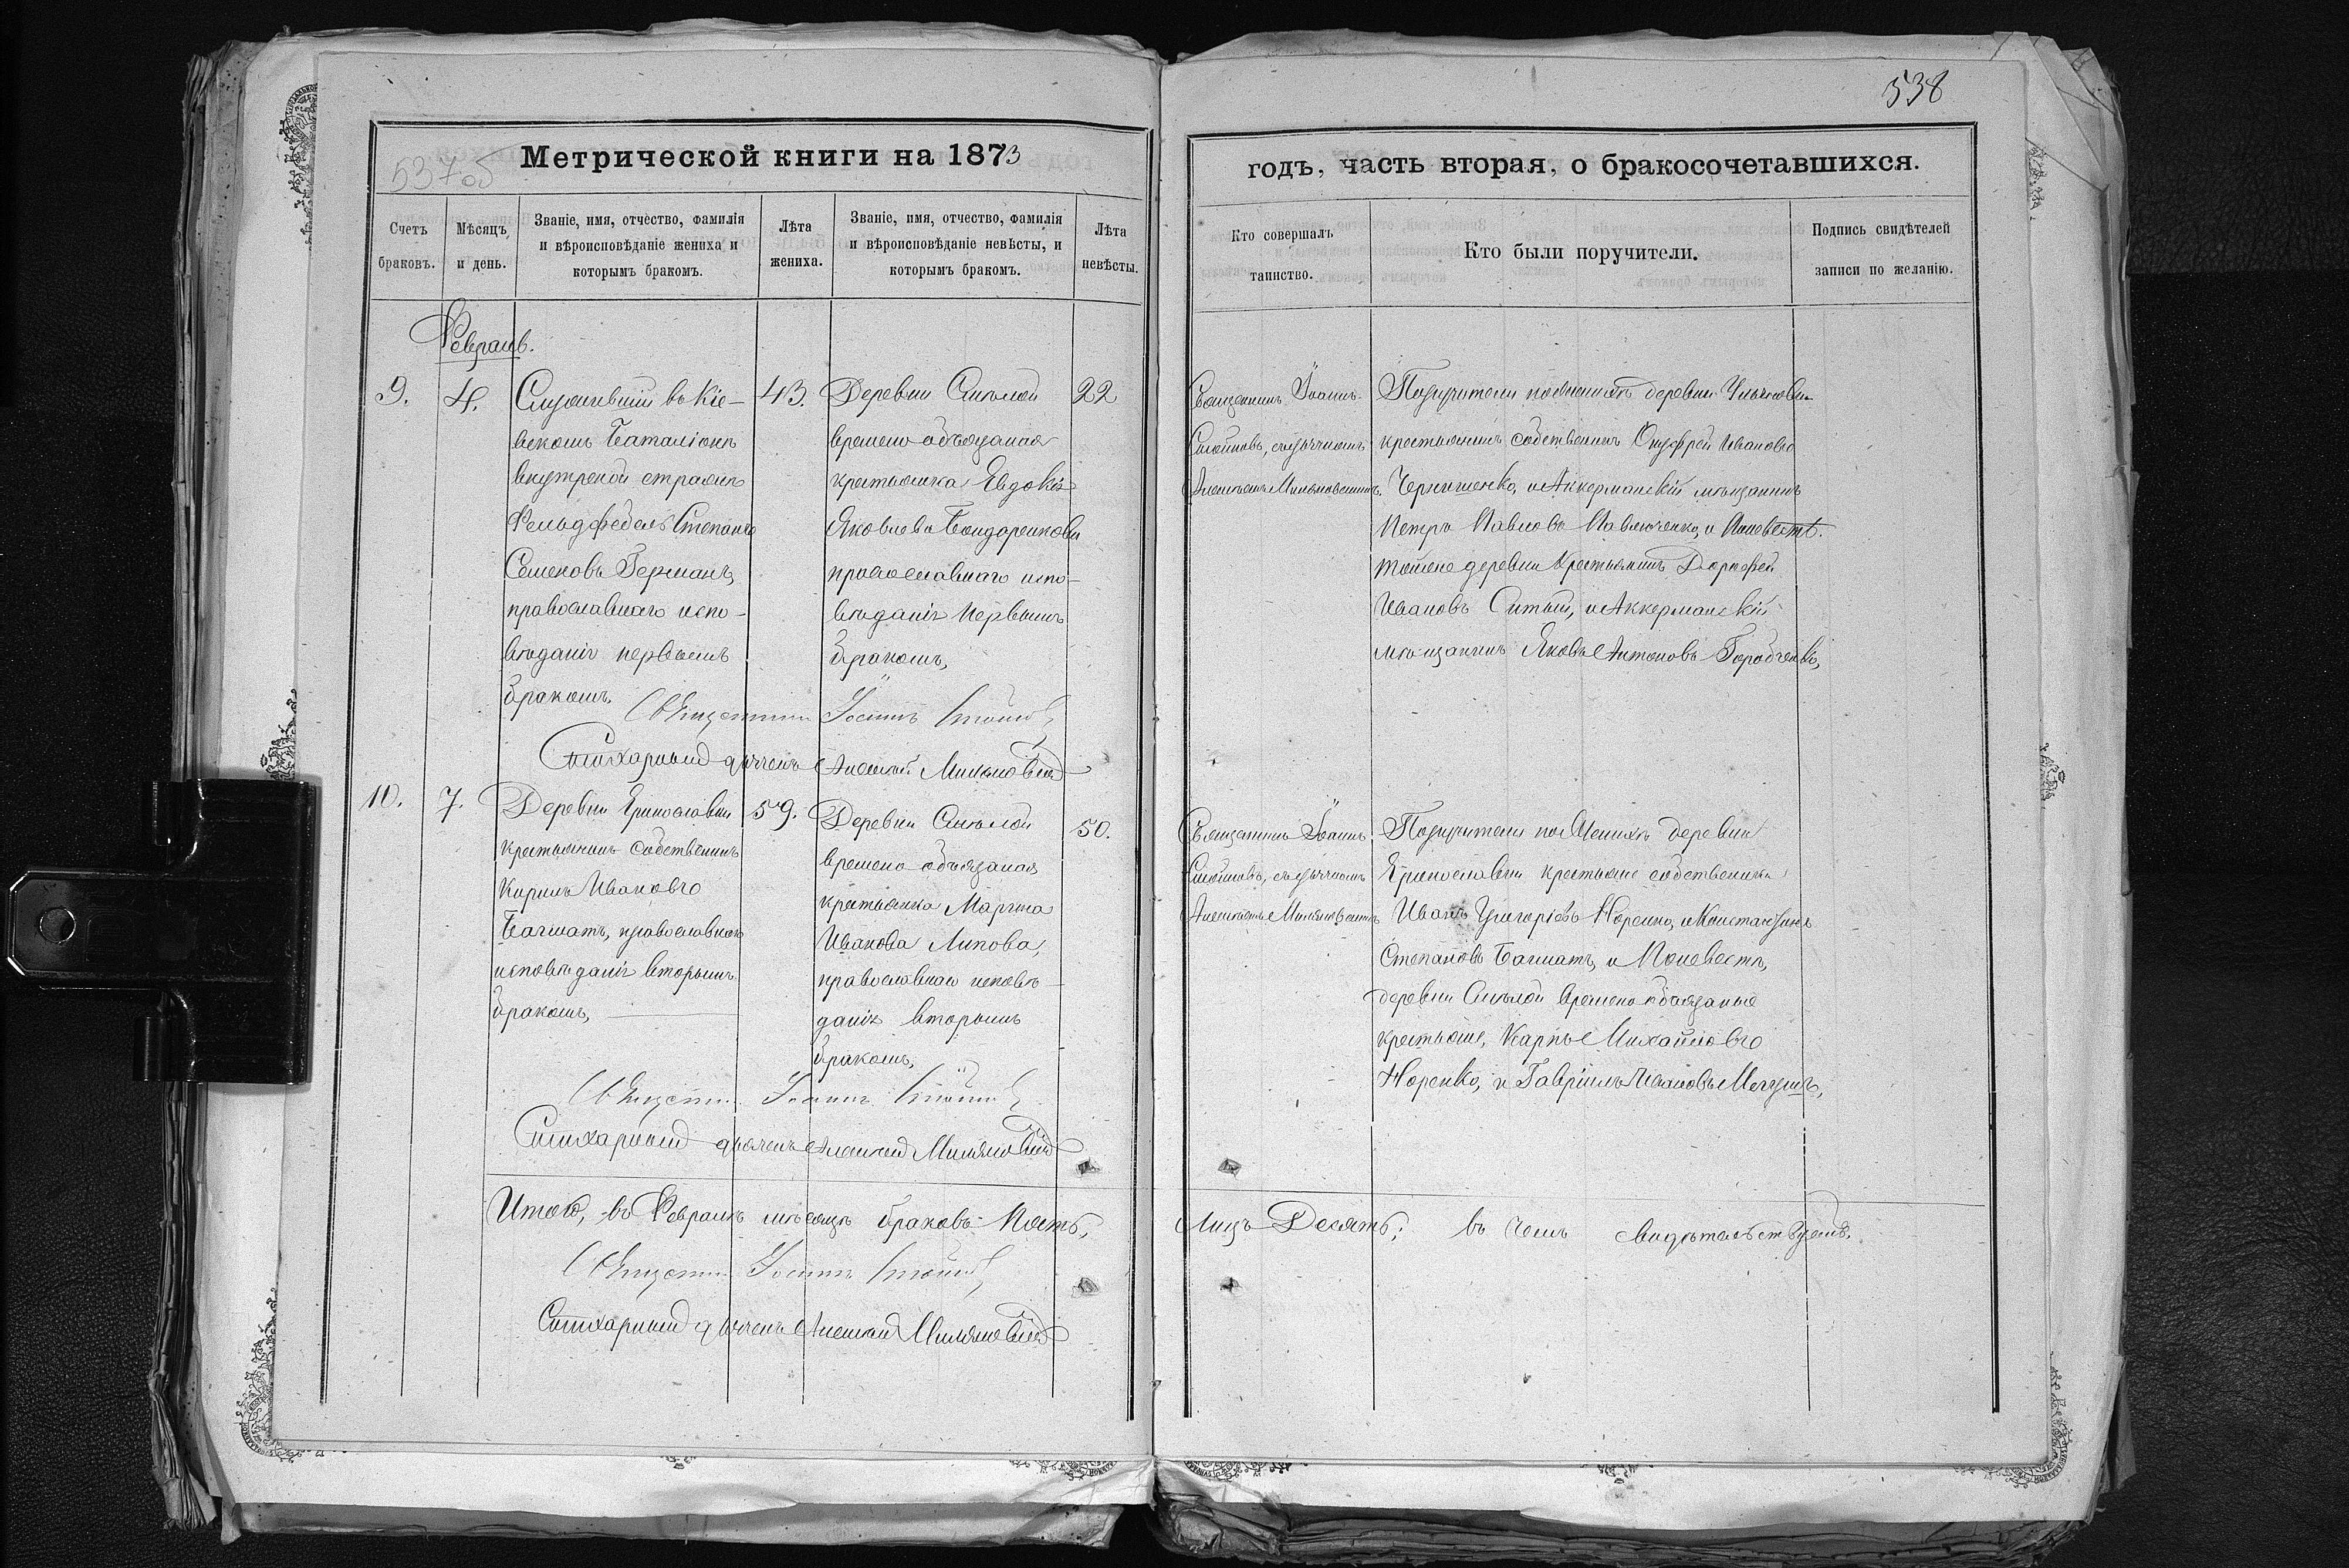 538
537об
Метрической книги на 1873
годъ, часть вторая, о бракосочетавшихся.
Счетъ браковъ.
Мѣсяцъ и день.
Званіе, имя, отчество, фамилія
и вѣроисповѣданіе жениха и
которымъ бракомъ.
Лѣта жениха.
Званіе, имя, отчество, фамилія
и вѣроисповѣданіе невѣсты, и
которымъ бракомъ.
Лѣта невѣсты.
Кто совершалъ
таинство.
Кто были поручители.
Подпись свидѣтелей
записи по желанію.
Февраль.
9.
4.
Служившій въ Кіе-
вскомъ Баталіонѣ
внутреной стражи
Фельдфебель Степанъ
Семеновъ Германъ,
православнаго испо-
вѣданія первымъ
бракомъ.
43.
Деревни Смѣлой
времено-обязаная
крестьянка Евдокія
Яковлева Бондаренкова
православнаго испо-
вѣданія первымъ
бракомъ,
22
Священникъ Іоаннъ
Стойковъ, съ дьячкомъ
Алексѣемъ
Поручители по женихѣ деревни
крестьянинъ собственникъ Онуфрій Ивановъ
и Аккерманскій мѣщанинъ
Петръ Павловъ Павлюченко, и по невѣстѣ.
тойже деревни крестьянинъ Дорофей
Ивановъ Сытый, и Аккерманскій
мѣщанинъ Яковъ Антоновъ
Священникъ Іоаннъ Стойковъ
Стихарный дьячекъ Алексѣй
10.
7.
Деревни
крестьянинъ собственникъ
Кирилъ Ивановъ
Багматъ, православнаго
исповѣданія вторымъ
бракомъ,
59.
Деревни Смѣлой
времено обязаная
крестьянка Марина
Иванова Липова,
православнаго исповѣ-
данія вторымъ
бракомъ,
50.
Священникъ Іоаннъ
Стойковъ, съ дьячкомъ
Алексѣемъ
Поручители по женихѣ деревни
крестьяне собственники
Иванъ Григорьевъ Норенко, и Константинъ
Степановъ Багматъ, и по невѣстѣ,
деревни Смѣлой времено обязаные
крестьяне, Карпъ Михайловъ
Норенко, и Гавріилъ Ивановъ
Священникъ Іоаннъ Стойковъ
Стихарный дьячекъ Алексѣй
Итого, въ Февралѣ мѣсяцѣ браковъ Пять,
Лицъ Десять; въ чемъ свидѣтельствуемъ.
Священникъ Іоаннъ Стойковъ
Стихарный дьячекъ Алексѣй